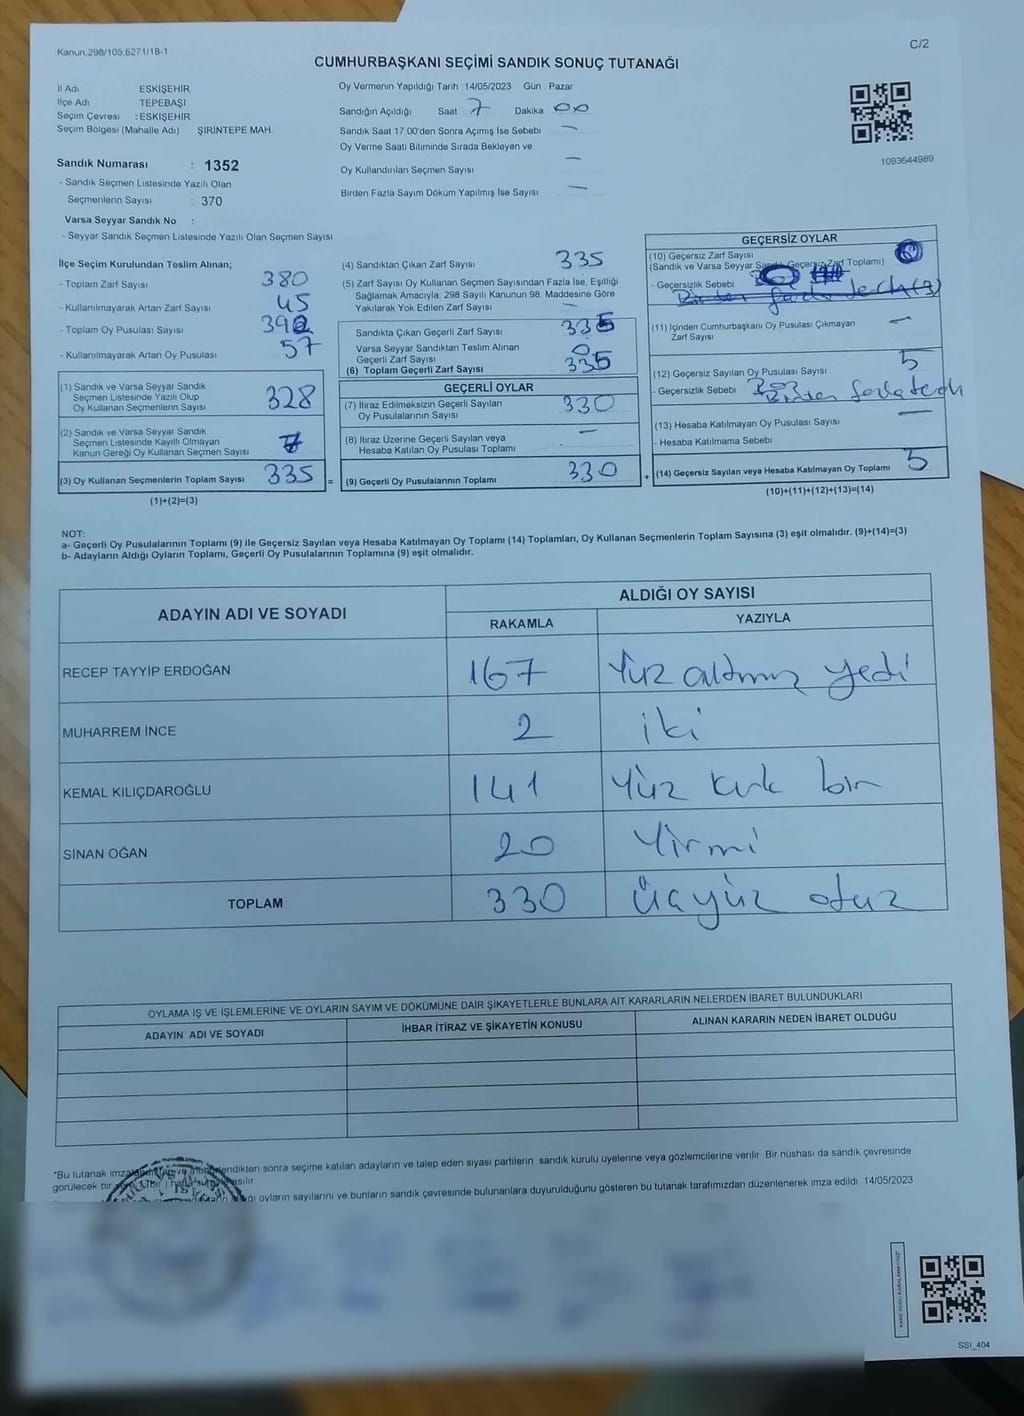 Kanun,298/105;6271/18-1
C/2
CUMHURBAŞKANI SEÇİMİ SANDIK SONUÇ TUTANAĞI
İl Adı ESKİŞEHİR
İlçe Adı TEPEBAŞI
Seçim Çevresi : ESKİŞEHİR
Seçim Bölgesi (Mahalle Adı) ŞİRİNTEPE MAH
Sandık Numarası : 1352
- Sandık Seçmen Listesinde Yazılı Olan
Seçmenlerin Sayısı : 370
Varsa Seyyar Sandık No :
- Seyyar Sandık Seçmen Listesinde Yazılı Olan Seçmen Sayısı
Oy Vermenin Yapıldığı Tarih 14/05/2023 Gün Pazar
Sandığın Açıldığı Saat 7 Dakika 00
Sandık Saat 17:00'den Sonra Açımış İse Sebebi —
Oy Verme Saati Bitiminde Sırada Bekleyen ve
Oy Kullandırılan Seçmen Sayısı —
Birden Fazla Sayım Döküm Yapılmış İse Sayısı —
1093644989
İlçe Seçim Kurulundan Teslim Alınan;
- Toplam Zarf Sayısı 380
- Kullanılmayarak Artan Zarf Sayısı 45
- Toplam Oy Pusulası Sayısı 392
- Kullanılmayarak Artan Oy Pusulası 57
(1) Sandık ve Varsa Seyyar Sandık
Seçmen Listesinde Yazılı Olup
Oy Kullanan Seçmenlerin Sayısı 328
(2) Sandık ve Varsa Seyyar Sandık
Seçmen Listesinde Kayıtlı Olmayan
Kanun Gereği Oy Kullanan Seçmen Sayısı 7
(3) Oy Kullanan Seçmenlerin Toplam Sayısı 335
(1)+(2)=(3)
=
(4) Sandıktan Çıkan Zarf Sayısı 335
(5) Zarf Sayısı Oy Kullanan Seçmen Sayısından Fazla İse, Eşitliği
Sağlamak Amacıyla, 298 Sayılı Kanunun 98. Maddesine Göre
Yakılarak Yok Edilen Zarf Sayısı —
Sandıkta Çıkan Geçerli Zarf Sayısı 335
Varsa Seyyar Sandıktan Teslim Alınan
Geçerli Zarf Sayısı 0
(6) Toplam Geçerli Zarf Sayısı 335
GEÇERLİ OYLAR
(7) İtiraz Edilmeksizin Geçerli Sayılan
Oy Pusulalarının Sayısı 330
(8) İtiraz Üzerine Geçerli Sayılan veya
Hesaba Katılan Oy Pusulası Toplamı —
(9) Geçerli Oy Pusulalarının Toplamı 330
+
GEÇERSİZ OYLAR
(10) Geçersiz Zarf Sayısı
(Sandık ve Varsa Seyyar Sandık Geçersiz Zarf Toplamı)
- Geçersizlik Sebebi
(11) İçinden Cumhurbaşkanı Oy Pusulası Çıkmayan
Zarf Sayısı —
(12) Geçersiz Sayılan Oy Pusulası Sayısı 5
- Geçersizlik Sebebi Birden fazla tercih
(13) Hesaba Katılmayan Oy Pusulası Sayısı —
- Hesaba Katılmama Sebebi
(14) Geçersiz Sayılan veya Hesaba Katılmayan Oy Toplamı 5
(10)+(11)+(12)+(13)=(14)
NOT:
a- Geçerli Oy Pusulalarının Toplamı (9) ile Geçersiz Sayılan veya Hesaba Katılmayan Oy Toplamı (14) Toplamları, Oy Kullanan Seçmenlerin Toplam Sayısına (3) eşit olmalıdır. (9)+(14)=(3)
b- Adayların Aldığı Oyların Toplamı, Geçerli Oy Pusulalarının Toplamına (9) eşit olmalıdır.
ADAYIN ADI VE SOYADI ALDIĞI OY SAYISI
RAKAMLA YAZIYLA
RECEP TAYYİP ERDOĞAN 167 Yüz altmış yedi
MUHARREM İNCE 2 iki
KEMAL KILIÇDAROĞLU 141 Yüz kırk bir
SİNAN OĞAN 20 Yirmi
TOPLAM 330 üçyüz otuz
OYLAMA İŞ VE İŞLEMLERİNE VE OYLARIN SAYIM VE DÖKÜMÜNE DAİR ŞİKAYETLERLE BUNLARA AİT KARARLARIN NELERDEN İBARET BULUNDUKLARI
ADAYIN ADI VE SOYADI İHBAR İTİRAZ VE ŞİKAYETİN KONUSU ALINAN KARARIN NEDEN İBARET OLDUĞU
*Bu tutanak sonra seçime katılan adayların ve talep eden siyasi partilerin sandık kurulu üyelerine veya gözlemcilerine verilir. Bir nüshası da sandık çevresinde
görülecek bir
oyların sayılarını ve bunların sandık çevresinde bulunanlara duyurulduğunu gösteren bu tutanak tarafımızdan düzenlenerek imza edildi. 14/05/2023
SSI_404